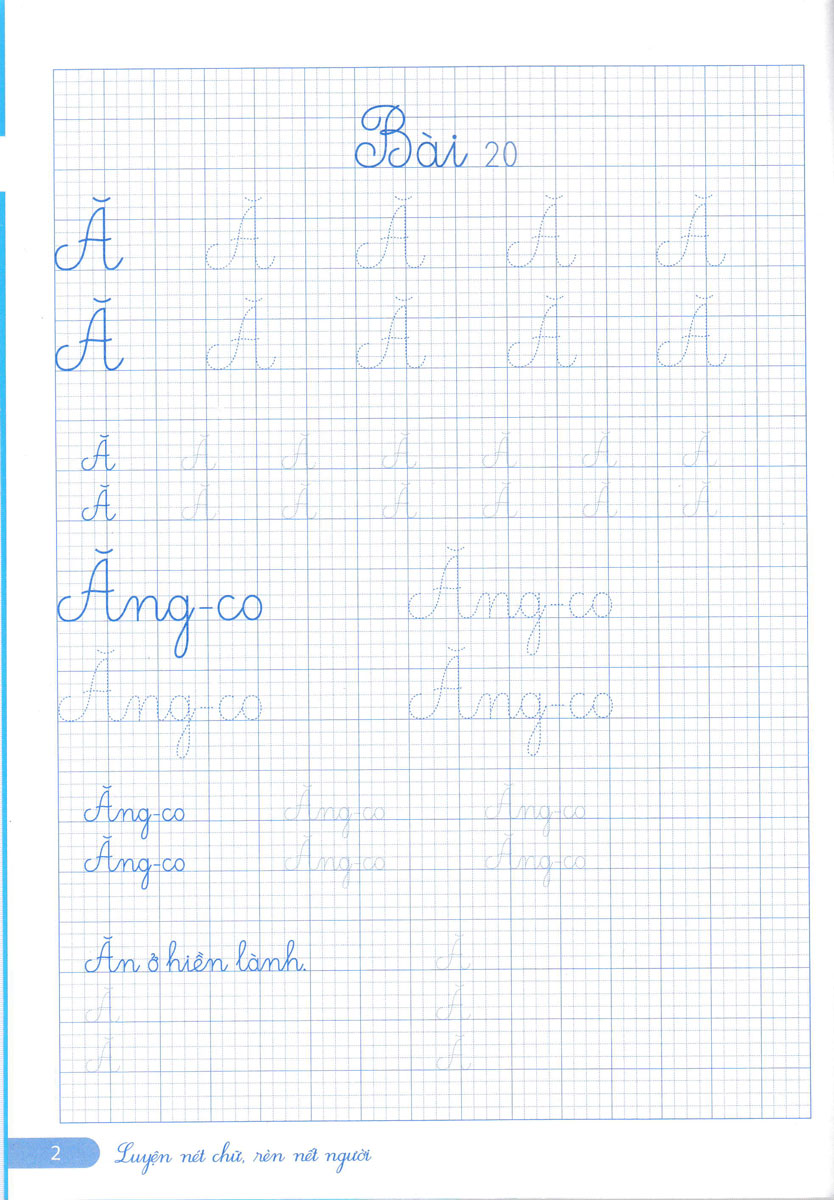 Bài 20
Ă Ă Ă Ă Ă
Ă Ă Ă Ă Ă
Ă Ă Ă Ă Ă Ă Ă
Ă Ă Ă Ă Ă Ă Ă
Ăng-co Ăng-co
Ăng-co Ăng-co
Ăng-co Ăng-co Ăng-co
Ăng-co Ăng-co Ăng-co
Ăn ở hiền lành. Ă
Ă Ă
Ă Ă
2 Luyện nét chữ, rèn nết người